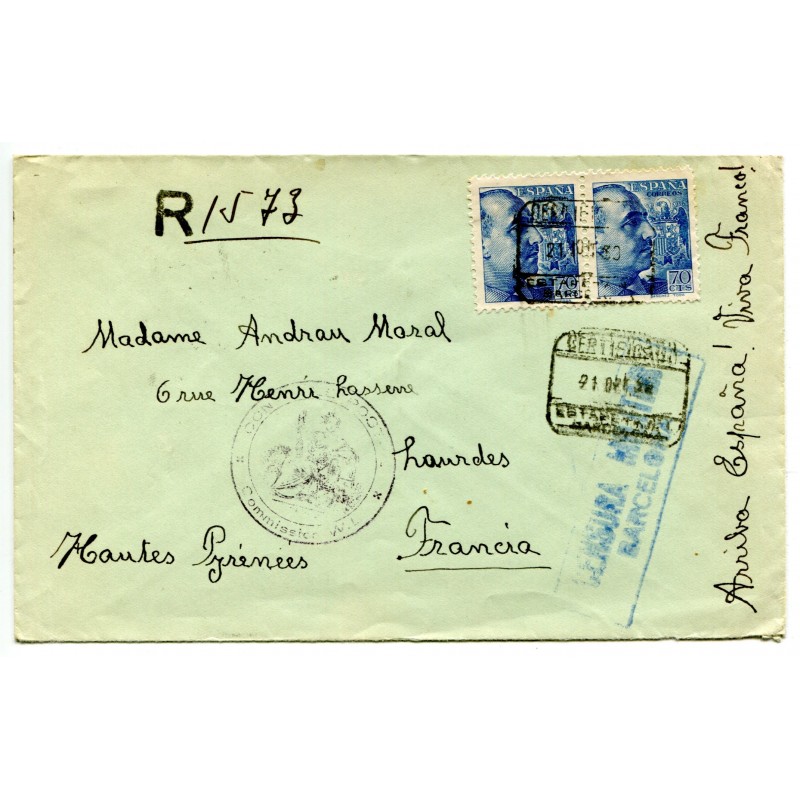 R 1573
ESPAÑA
ESPAÑA
CORREOS
70
70 CTS
Madame Andrau Maral
6 rue Henri Lasserre
Lourdes
Hautes Pyrénées
Francia
CERTIFICADO
21 OCT 39
BARCELONA
Commission W.I.
CENSURA MILITAR
BARCELONA
Arriba España! Viva Franco!